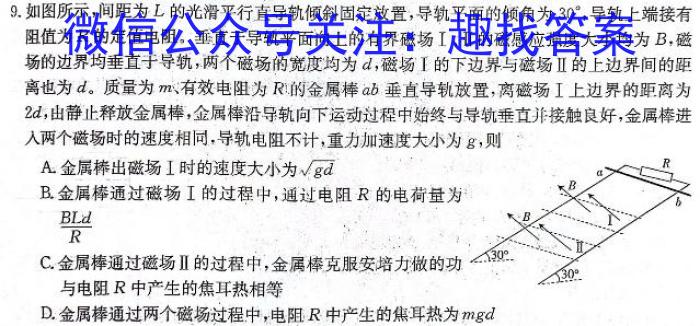 9. 如图所示,间距为 L 的光滑平行直导轨倾斜固定放置,导轨平面的倾角为 30°,导轨上端接有
阻值为
微信公众号关注:趣找答案
为 B,磁
场的边界均垂直于导轨,两个磁场的宽度均为 d,磁场 Ⅰ 的下边界与磁场 Ⅱ 的上边界间的距
离也为 d。质量为 m、有效电阻为 R 的金属棒 ab 垂直导轨放置,离磁场 Ⅰ 上边界的距离为
2d,由静止释放金属棒,金属棒沿导轨向下运动过程中始终与导轨垂直并接触良好,金属棒进
入两个磁场时的速度相同,导轨电阻不计,重力加速度大小为 g,则
A. 金属棒出磁场 Ⅰ 时的速度大小为√gd
B. 金属棒通过磁场 Ⅰ 的过程中,通过电阻 R 的电荷量为
BLd
R
C. 金属棒通过磁场 Ⅱ 的过程中,金属棒克服安培力做的功
与电阻 R 中产生的焦耳热相等
D. 金属棒通过两个磁场过程中,电阻 R 中产生的焦耳热为 mgd
R
a
b
B
Ⅰ
B
Ⅱ
30°
30°